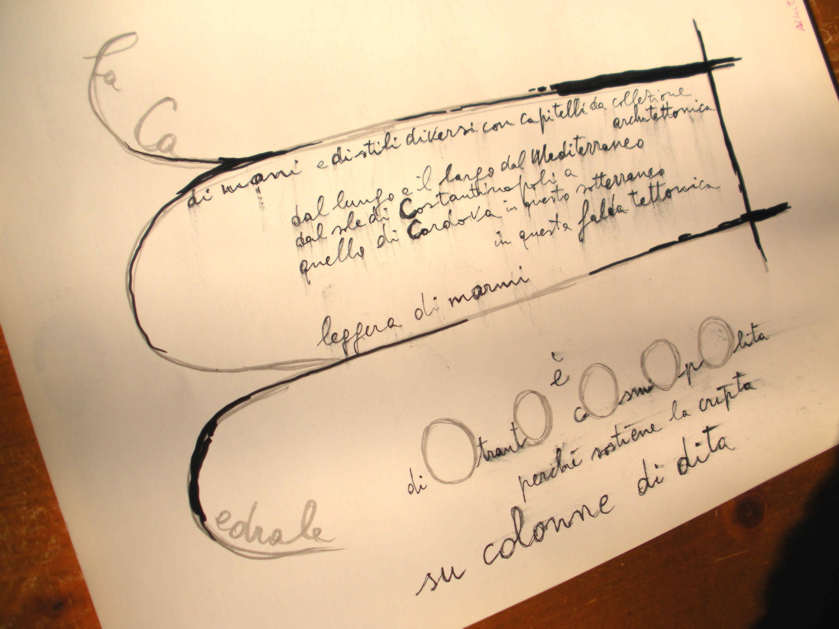 la
Ca
di mari e di stili diversi con capitelli da collezione
architettonica
dal lungo e il largo dal Mediterraneo
dal sole di Costantinopoli a
quello di Cordova in questo sotterraneo
in questa falda tettonica
leggera di marmi
edrale
di OtrantO è cOsmOpOlita
perché sostiene la cripta
su colonne di dita